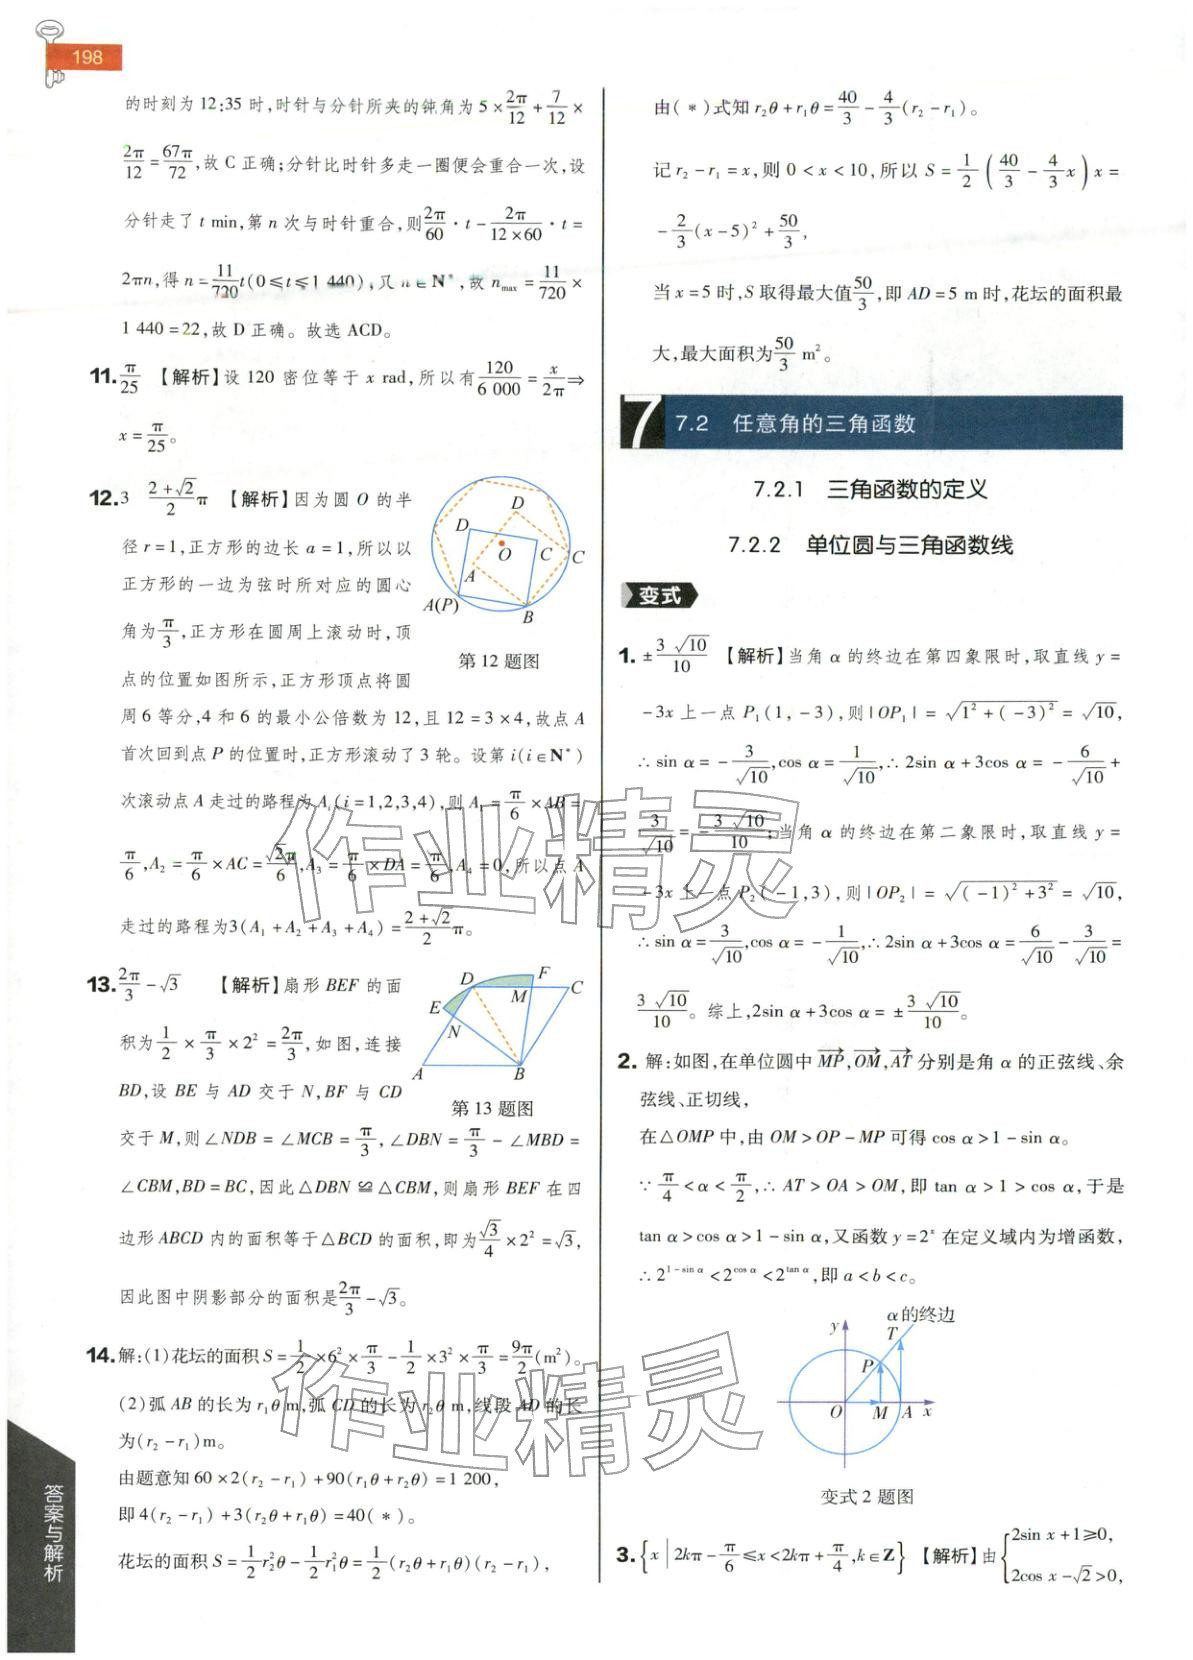 198
的时刻为 12:35 时,时针与分针所夹的钝角为 5×2π/12+7/12×
2π/12=67π/72,故 C 正确;分针比时针多走一圈便会重合一次,设
分针走了 t min,第 n 次与时针重合,则2π/60·t-2π/(12×60)·t=
2πn,得 n=11/720 t(0≤t≤1 440),又 n∈N*,故 n_max=11/720×
1 440=22,故 D 正确。故选 ACD。
11. π/25 【解析】设 120 密位等于 x rad,所以有120/6 000=x/2π⇒
x=π/25。
12. 3 (2+√2)/2 π 【解析】因为圆 O 的半
径 r=1,正方形的边长 a=1,所以以
正方形的一边为弦时所对应的圆心
角为π/3,正方形在圆周上滚动时,顶
点的位置如图所示,正方形顶点将圆
D
D
O
C
C
A
A(P)
B
第 12 题图
周 6 等分,4 和 6 的最小公倍数为 12,且 12=3×4,故点 A
首次回到点 P 的位置时,正方形滚动了 3 轮。设第 i(i∈N*)
次滚动点 A 走过的路程为 A_i(i=1,2,3,4),则 A₁=π/6×AB=
π/6,A₂=π/6×AC=√2π/6,A₃=π/6×DA=π/6,A₄=0,所以点 A
走过的路程为3(A₁+A₂+A₃+A₄)=(2+√2)/2 π。
13. 2π/3-√3 【解析】扇形 BEF 的面
积为1/2×π/3×2²=2π/3,如图,连接
BD,设 BE 与 AD 交于 N,BF 与 CD
D
F
E
M
C
N
A
B
第 13 题图
交于 M,则∠NDB=∠MCB=π/3,∠DBN=π/3-∠MBD=
∠CBM,BD=BC,因此△DBN≌△CBM,则扇形 BEF 在四
边形 ABCD 内的面积等于△BCD 的面积,即为√3/4×2²=√3,
因此图中阴影部分的面积是2π/3-√3。
14. 解:(1)花坛的面积 S=1/2×6²×π/3-1/2×3²×π/3=9π/2(m²)。
(2)弧 AB 的长为 r₁θ m,弧 CD 的长为 r₂θ m,线段 AD 的长
为(r₂-r₁)m。
由题意知 60×2(r₂-r₁)+90(r₁θ+r₂θ)=1 200,
即 4(r₂-r₁)+3(r₂θ+r₁θ)=40(*)。
花坛的面积 S=1/2 r₂²θ-1/2 r₁²θ=1/2(r₂θ+r₁θ)(r₂-r₁),
由(*)式知 r₂θ+r₁θ=40/3-4/3(r₂-r₁)。
记 r₂-r₁=x,则 0<x<10,所以 S=1/2(40/3-4/3 x)x=
-2/3(x-5)²+50/3,
当 x=5 时,S 取得最大值50/3,即 AD=5 m 时,花坛的面积最
大,最大面积为50/3 m²。
7
7.2 任意角的三角函数
7.2.1 三角函数的定义
7.2.2 单位圆与三角函数线
变式
1. ±3√10/10 【解析】当角 α 的终边在第四象限时,取直线 y=
-3x 上一点 P₁(1,-3),则|OP₁|=√(1²+(-3)²)=√10,
∴sin α=-3/√10,cos α=1/√10,∴2sin α+3cos α=-6/√10+
3/√10=-3√10/10;当角 α 的终边在第二象限时,取直线 y=
-3x 上一点 P₂(-1,3),则|OP₂|=√((-1)²+3²)=√10,
∴sin α=3/√10,cos α=-1/√10,∴2sin α+3cos α=6/√10-3/√10=
3√10/10。综上,2sin α+3cos α=±3√10/10。
2. 解:如图,在单位圆中 MP→,OM→,AT→ 分别是角 α 的正弦线、余
弦线、正切线,
在△OMP 中,由 OM>OP-MP 可得 cos α>1-sin α。
∵π/4<α<π/2,∴AT>OA>OM,即 tan α>1>cos α,于是
tan α>cos α>1-sin α,又函数 y=2ˣ 在定义域内为增函数,
∴2^(1-sin α)<2^(cos α)<2^(tan α),即 a<b<c。
α的终边
y
T
P
O
M
A
x
变式 2 题图
3. {x|2kπ-π/6≤x<2kπ+π/4,k∈Z} 【解析】由{2sin x+1≥0,
2cos x-√2>0,
答案与解析
作业精灵
作业精灵